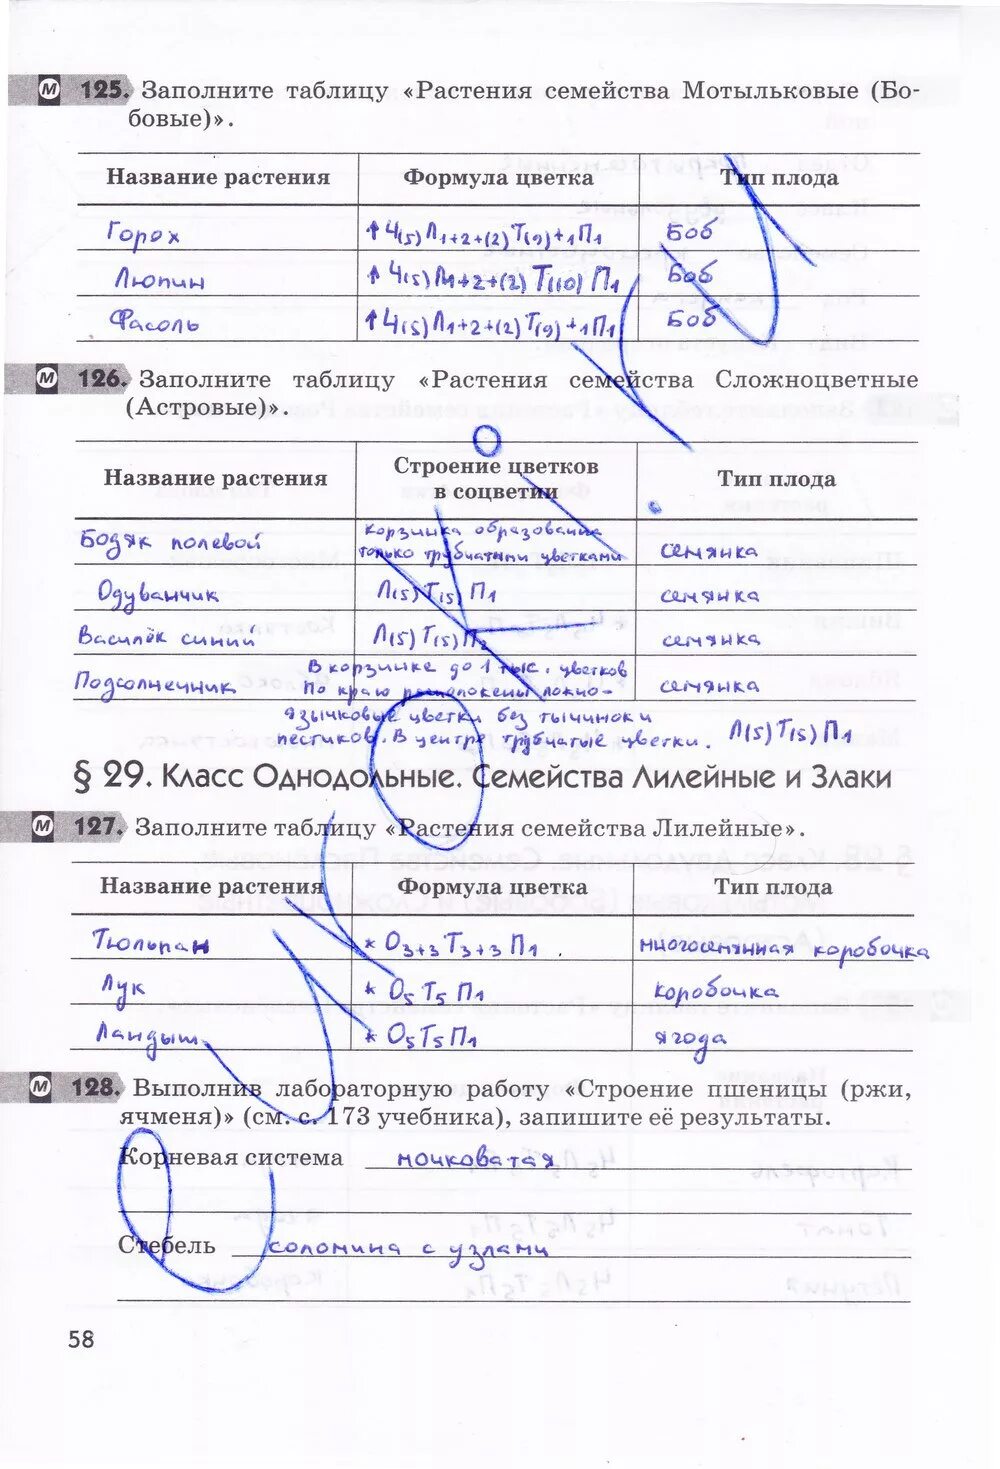 М 125. Заполните таблицу «Растения семейства Мотыльковые (Бо-
бовые)».
Название растения Формула цветка Тип плода
Горох ↑Ч(5)Л1+2+(2)Т(9)+1П1 Боб
Люпин ↑Ч(5)Л1+2+(2)Т(10)П1 Боб
Фасоль ↑Ч(5)Л1+2+(2)Т(9)+1П1 Боб
М 126. Заполните таблицу «Растения семейства Сложноцветные
(Астровые)».
Название растения Строение цветков в соцветии Тип плода
Бодяк полевой корзинка образована только трубчатыми цветками семянка
Одуванчик Л(5)Т(5)П1 семянка
Василёк синий Л(5)Т(5) семянка
Подсолнечник В корзинке до 1 тыс. цветков семянка
По краю расположены ложно-
язычковые цветки без тычинок и
пестиков. В центре трубчатые цветки. Л(5)Т(5)П1
§ 29. Класс Однодольные. Семейства Лилейные и Злаки
М 127. Заполните таблицу «Растения семейства Лилейные».
Название растения Формула цветка Тип плода
Тюльпан * О3+3Т3+3П1 многосемянная коробочка
Лук * О5Т5П1 коробочка
Ландыш * О5Т5П1 ягода
М 128. Выполнив лабораторную работу «Строение пшеницы (ржи,
ячменя)» (см. с. 173 учебника), запишите её результаты.
Корневая система мочковатая
Стебель соломина с узлами
58